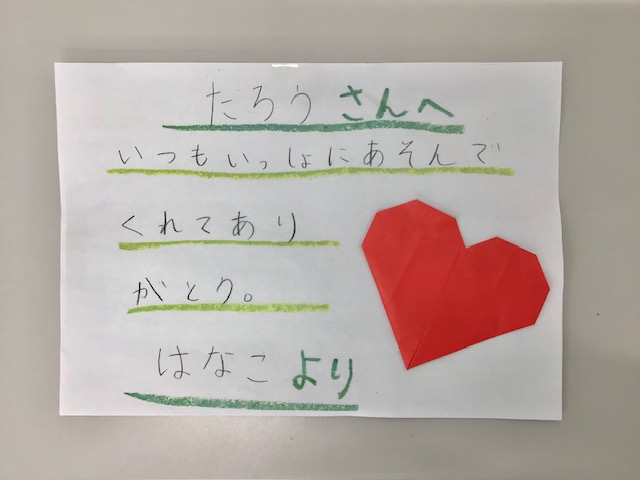 たろうさんへ
いつもいっしょにあそんで
くれてあり
がとう。
はなこより